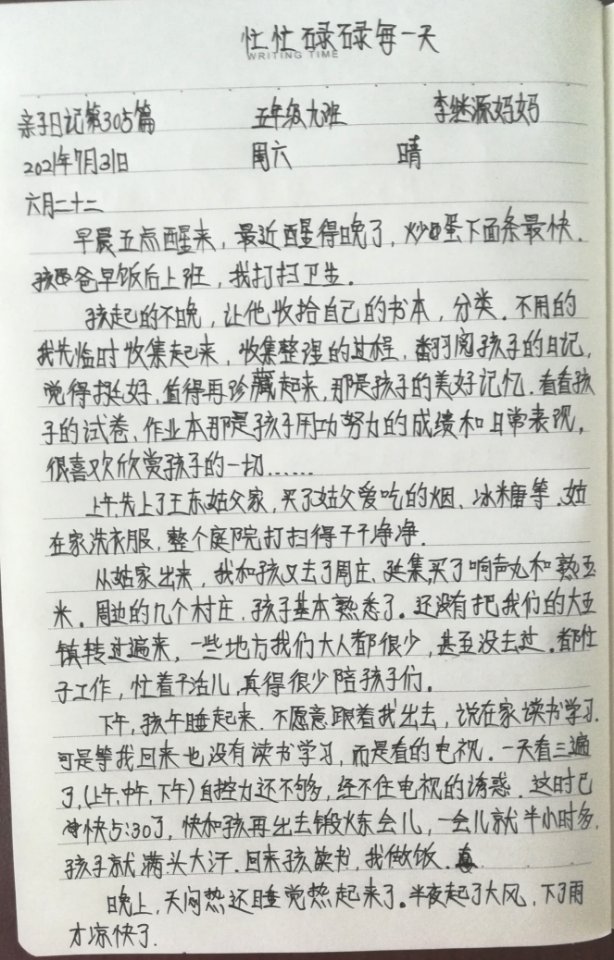 忙忙碌碌每一天
WRITING TIME
亲子日记第305篇 五年级九班 李继源妈妈
2021年7月31日 周六 晴
六月二十二
早晨五点醒来，最近醒得晚了，炒蛋下面条最快.
孩爸早饭后上班，我打扫卫生.
孩起的不晚，让他收拾自己的书本，分类.不用的
我先临时收集起来，收集整理的过程，翻阅孩子的日记，
觉得挺好，值得再珍藏起来，那是孩子的美好记忆.看看孩
子的试卷、作业本那是孩子用功努力的成绩和日常表现，
很喜欢欣赏孩子的一切……
上午先上了王东姑父家，买了姑父爱吃的烟、冰糖等.姑
在家洗衣服，整个庭院打扫得干干净净.
从姑家出来，我和孩又去了周庄、延集，买了响声丸和熟玉
米.周边的几个村庄，孩子基本熟悉了.还没有把我们的大亚
镇转过遍来，一些地方我们大人都很少，甚至没去过.都忙
于工作，忙着干活儿，真得很少陪孩子们。
下午，孩午睡起来.不愿意跟着我出去，说在家读书学习.
可是等我回来也没有读书学习，而是看的电视.一天看三遍
了，(上午，中午，下午)自控力还不够，经不住电视的诱惑.这时已
快5:30了，快和孩再出去锻炼会儿，一会儿就半小时多.
孩子就满头大汗.回来孩读书，我做饭.
晚上，天闷热还睡觉热起来了。半夜起了大风，下了雨
才凉快了.